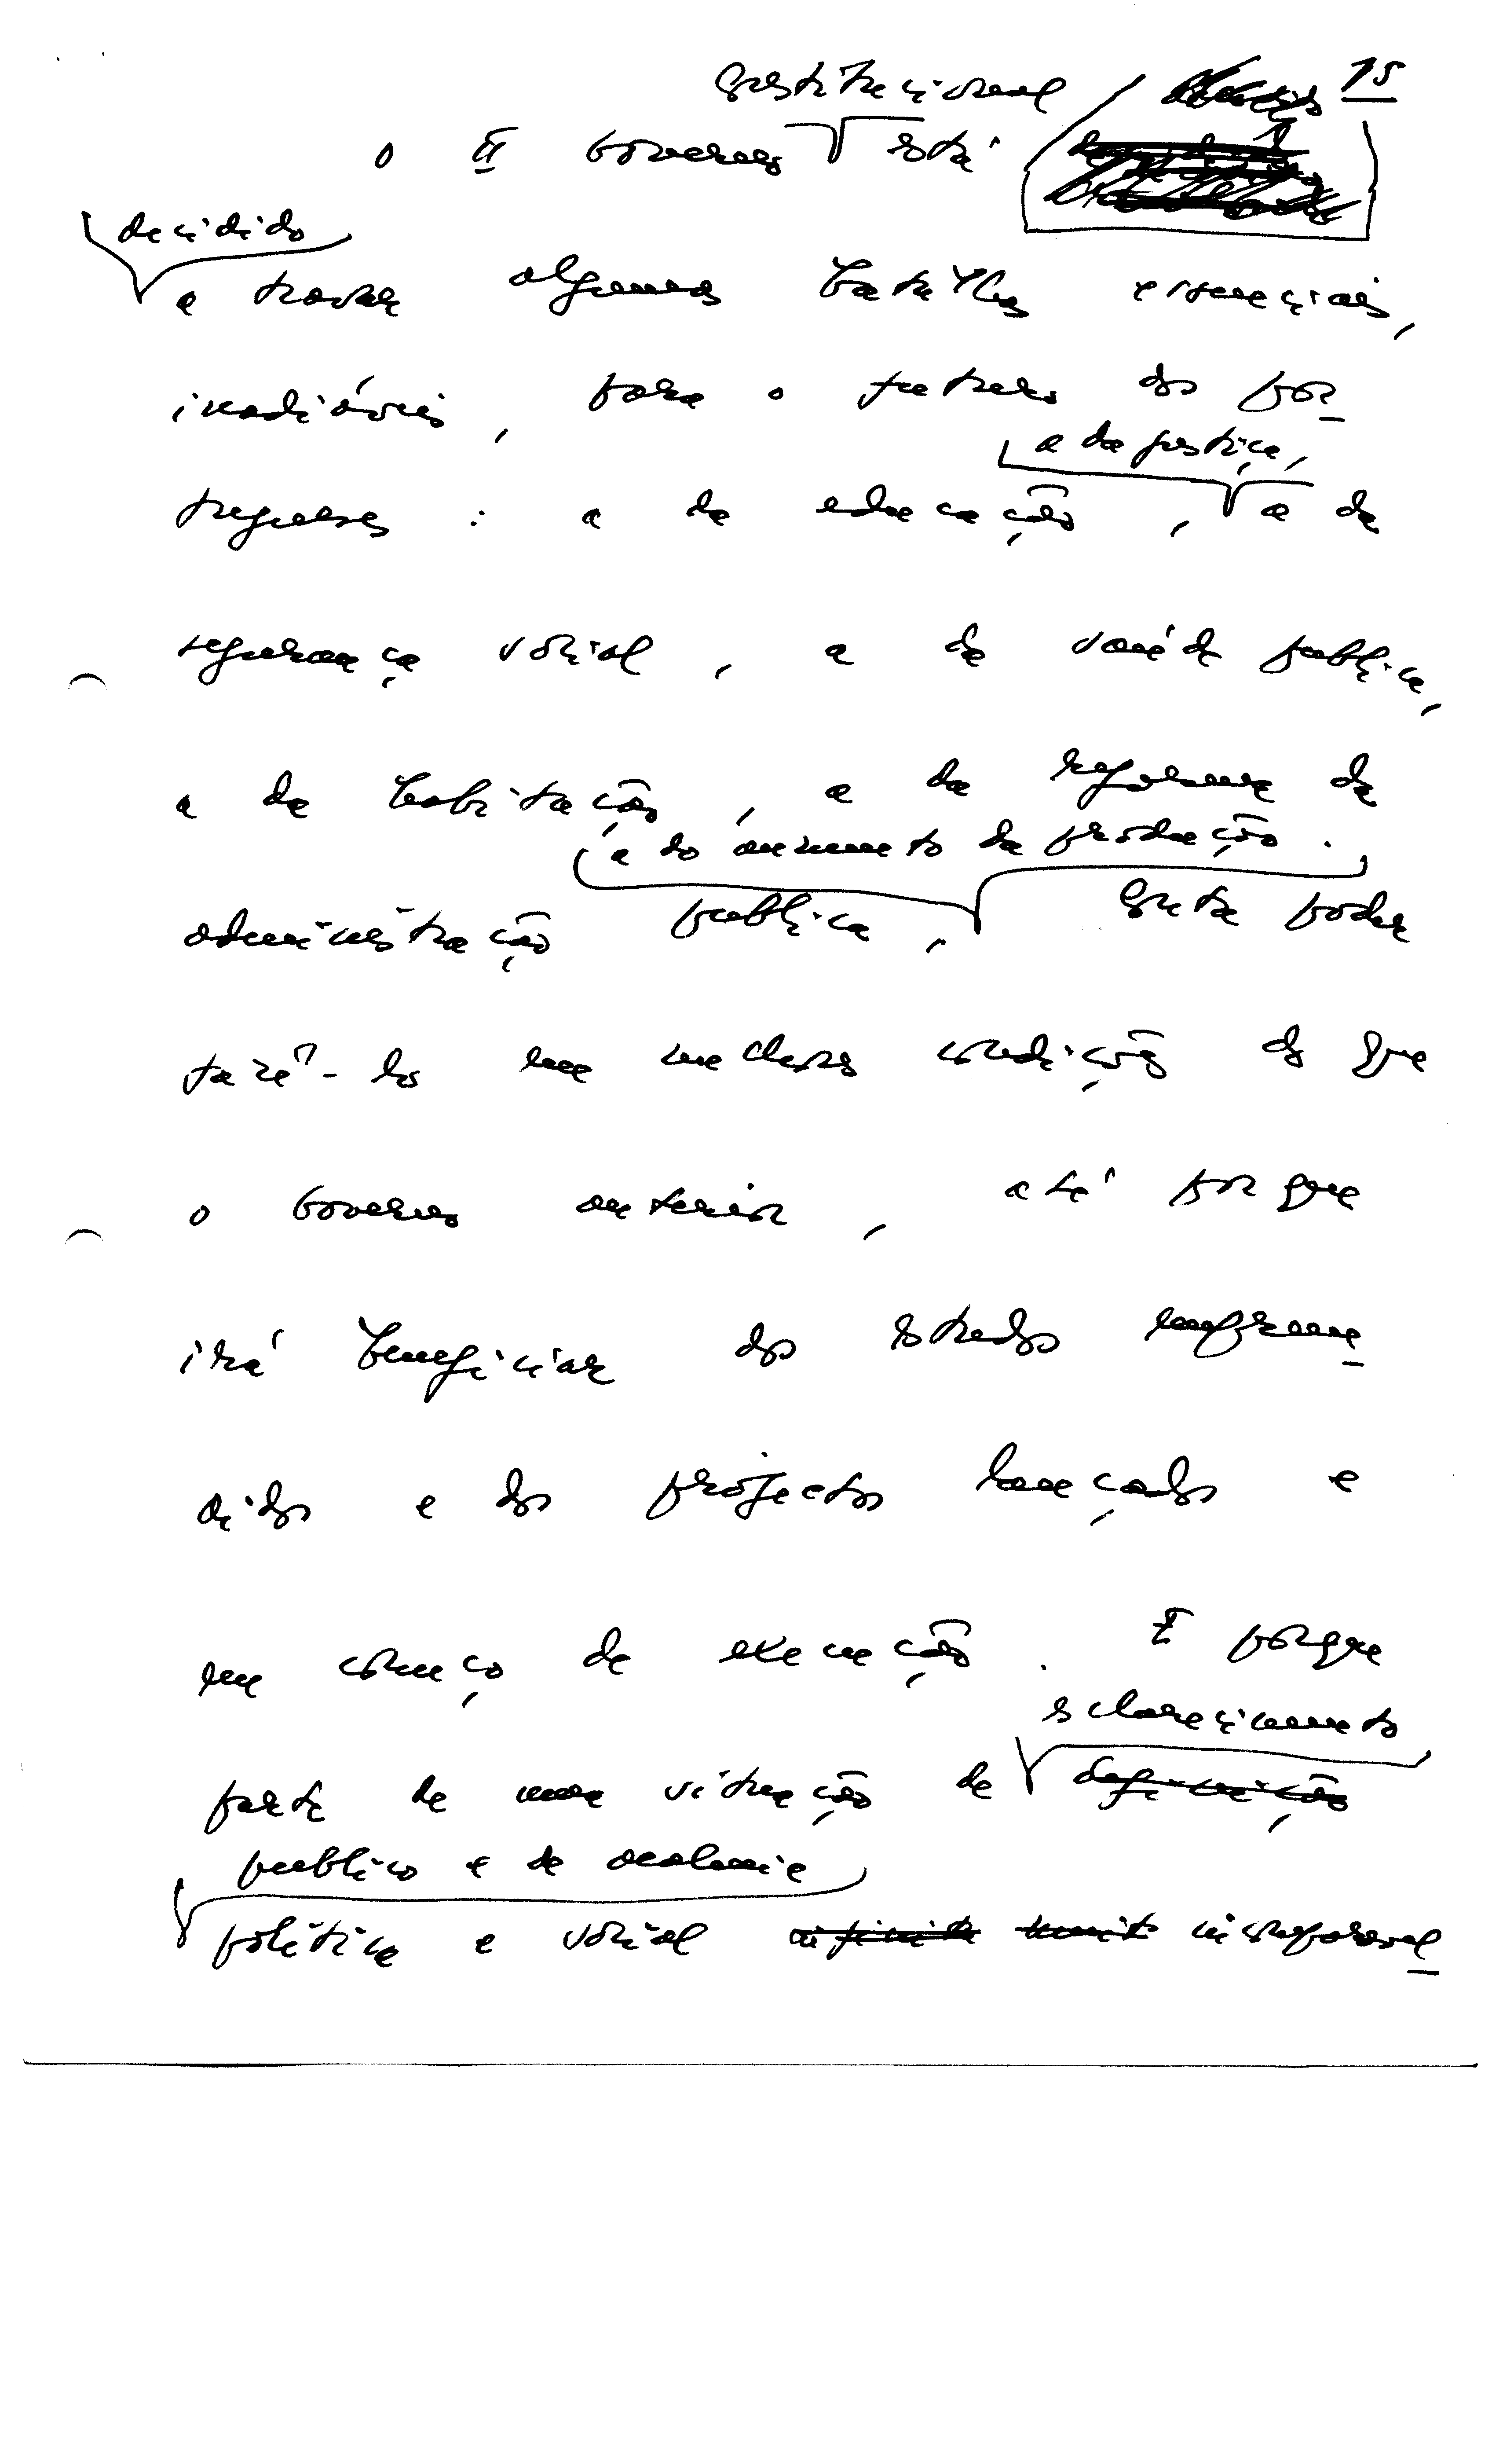 15
constitucional
o II Governo está
decidido
a travar algumas batalhas essenciais,
inadiáveis, para o futuro dos por-
a da justiça,
tugueses : a da educação, a da
segurança social, a da saúde publica,
a da habitação, a da reforma da
a do aumento da produção.
administração publica, Conta poder
fazê-lo em melhores condições do que
o Governo anterior, até porque
irá beneficiar dos estudos empreen-
didos e dos projectos lançados e
em começo de execução. E porque
esclarecimento
parte de uma situação de definição
publico e de acalmia
política e social incomparavel-